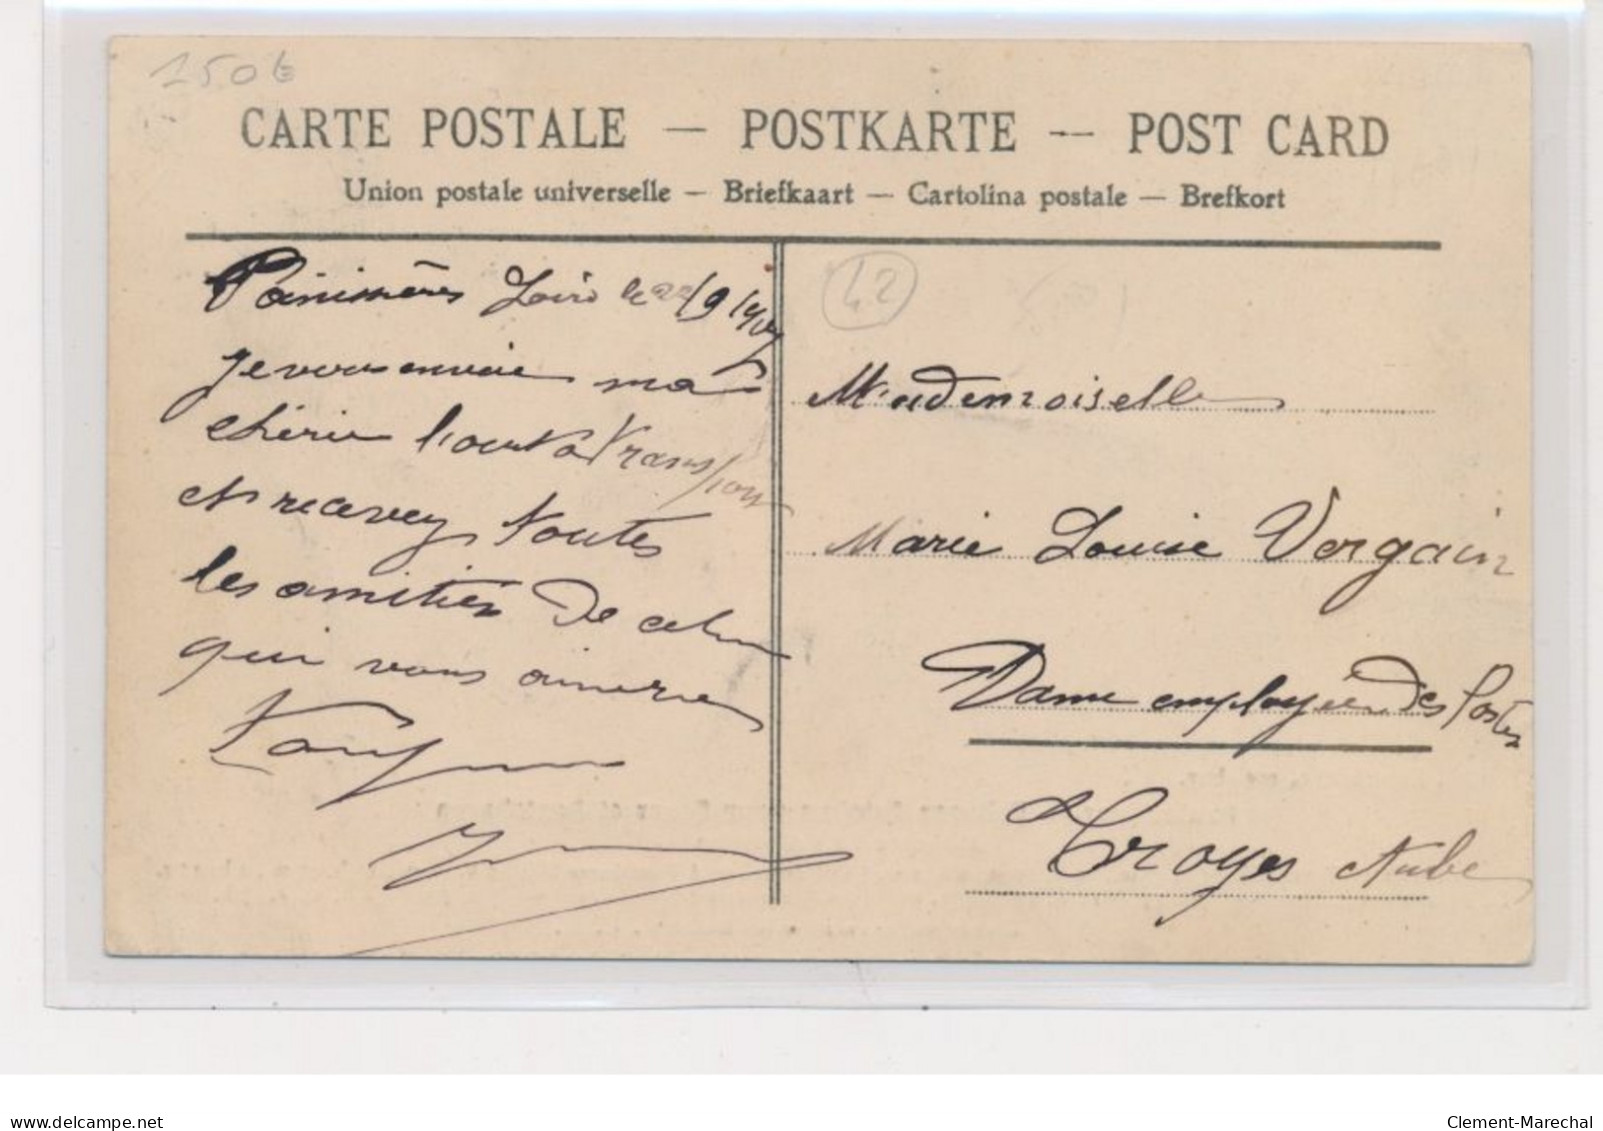 150€
CARTE POSTALE — POSTKARTE — POST CARD
Union postale universelle — Briefkaart — Cartolina postale — Brefkort
Panissières Loire le 22/9
42
je vous envoie ma
chérie
et recevez toutes
les amitiés de celui
qui vous aime
Mademoiselle
Marie Louise Vergain
Dame employée des Postes
Troyes Aube
delcampe.net
Clement-Marechal